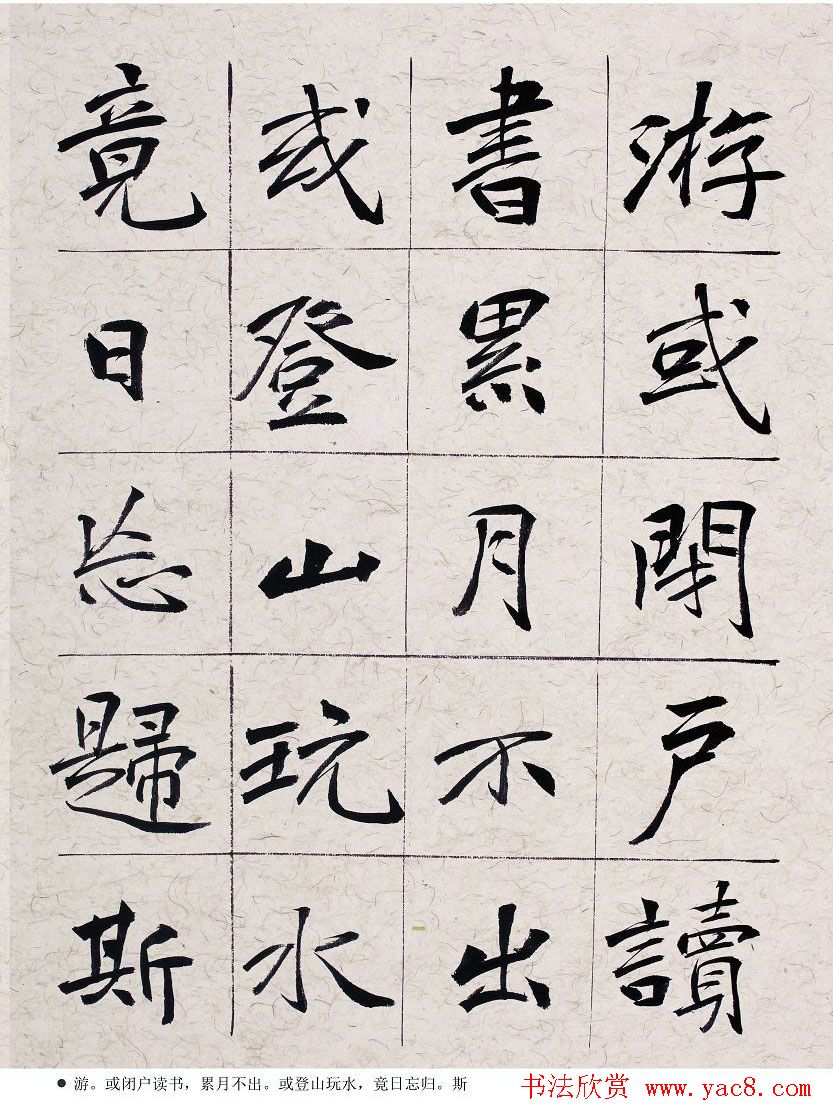 游或閉戶讀
書累月不出
或登山玩水
竟日忘歸斯
● 游。或闭户读书，累月不出。或登山玩水，竟日忘归。斯
书法欣赏 www.yac8.com